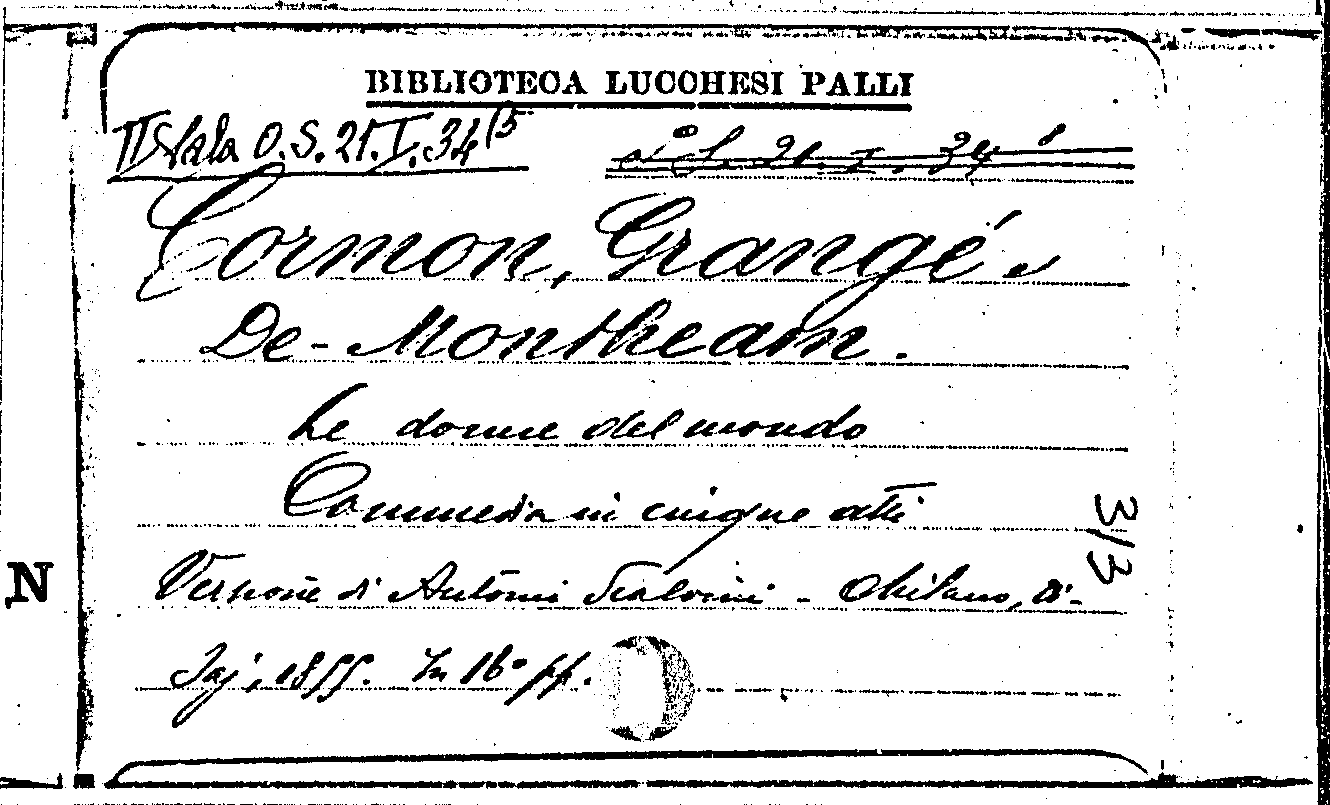 BIBLIOTECA LUCCHESI PALLI
II Sala O.S. 21. I. 34 (5
Cormon, Grangé e
De-Montheam.
Le donne del mondo
Commedia in cinque atti
3/3
Versione di Antonio Scalvini - Milano, Di-
N
In 16° pp.